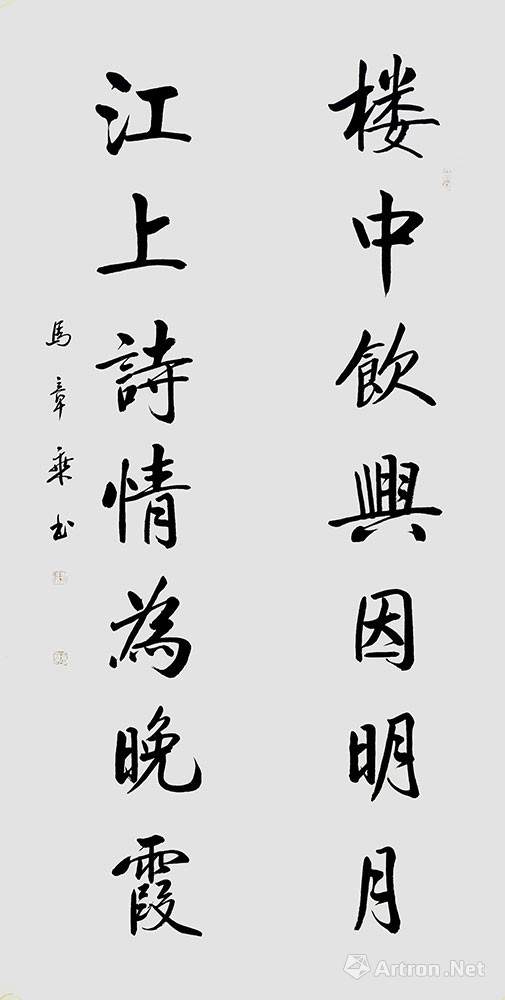 楼中飲興因明月
江上詩情為晚霞
馬章乘书
Artron.Net